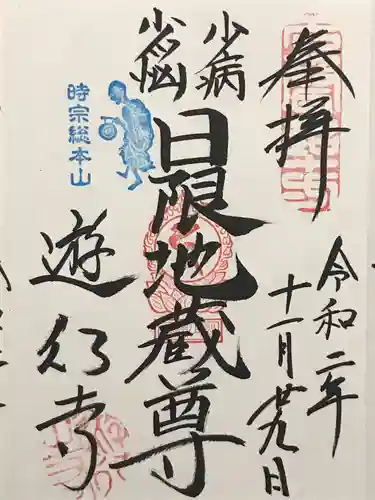 奉拝
令和二年
十一月廿九日
少病
少悩
日限地蔵尊
時宗総本山
遊行寺